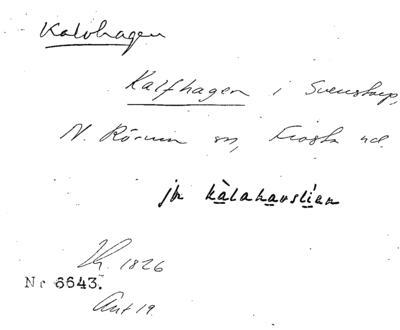 Kalvhagen
Kalfhagen i Svenstorp,
N. Rörum sn, Frosta hd.
jfr kàlahavslien
1826
Nr 6643.
Akt 19.